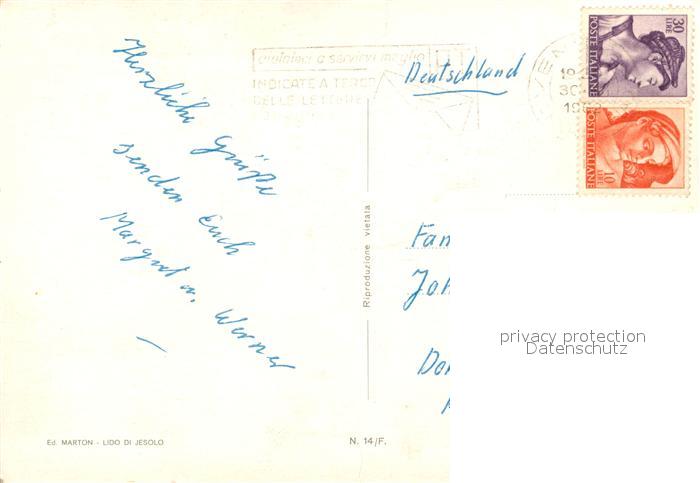 Herzliche
Grüße
senden Euch
Margret u. Werner
aiutateci a servirvi meglio
INDICATE A TERGO
DELLE LETTERE
Deutschland
30 LIRE
POSTE ITALIANE
10 LIRE
POSTE ITALIANE
Riproduzione vietata
Fam
Joh
privacy protection
Datenschutz
Ed. MARTON - LIDO DI JESOLO
N. 14/F.